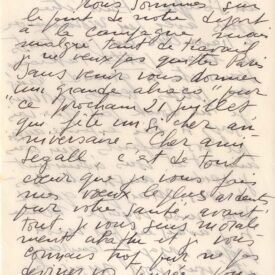 Nous sommes sur
le point de notre départ
à la campagne mais
malgré tant de travail
je ne veux pas quitter Paris
sans venir vous donner
"un grande abraço" pour
"ce prochain 21 juillet
qui fête un si cher an-
niversaire. Cher ami
Segall, c'est de tout
cœur que je vous fais
mes vœux le plus ardents
pour votre santé avant
tout, je vous sens morale
ment abattu et je vous
connais trop pour ne pas
deviner vos